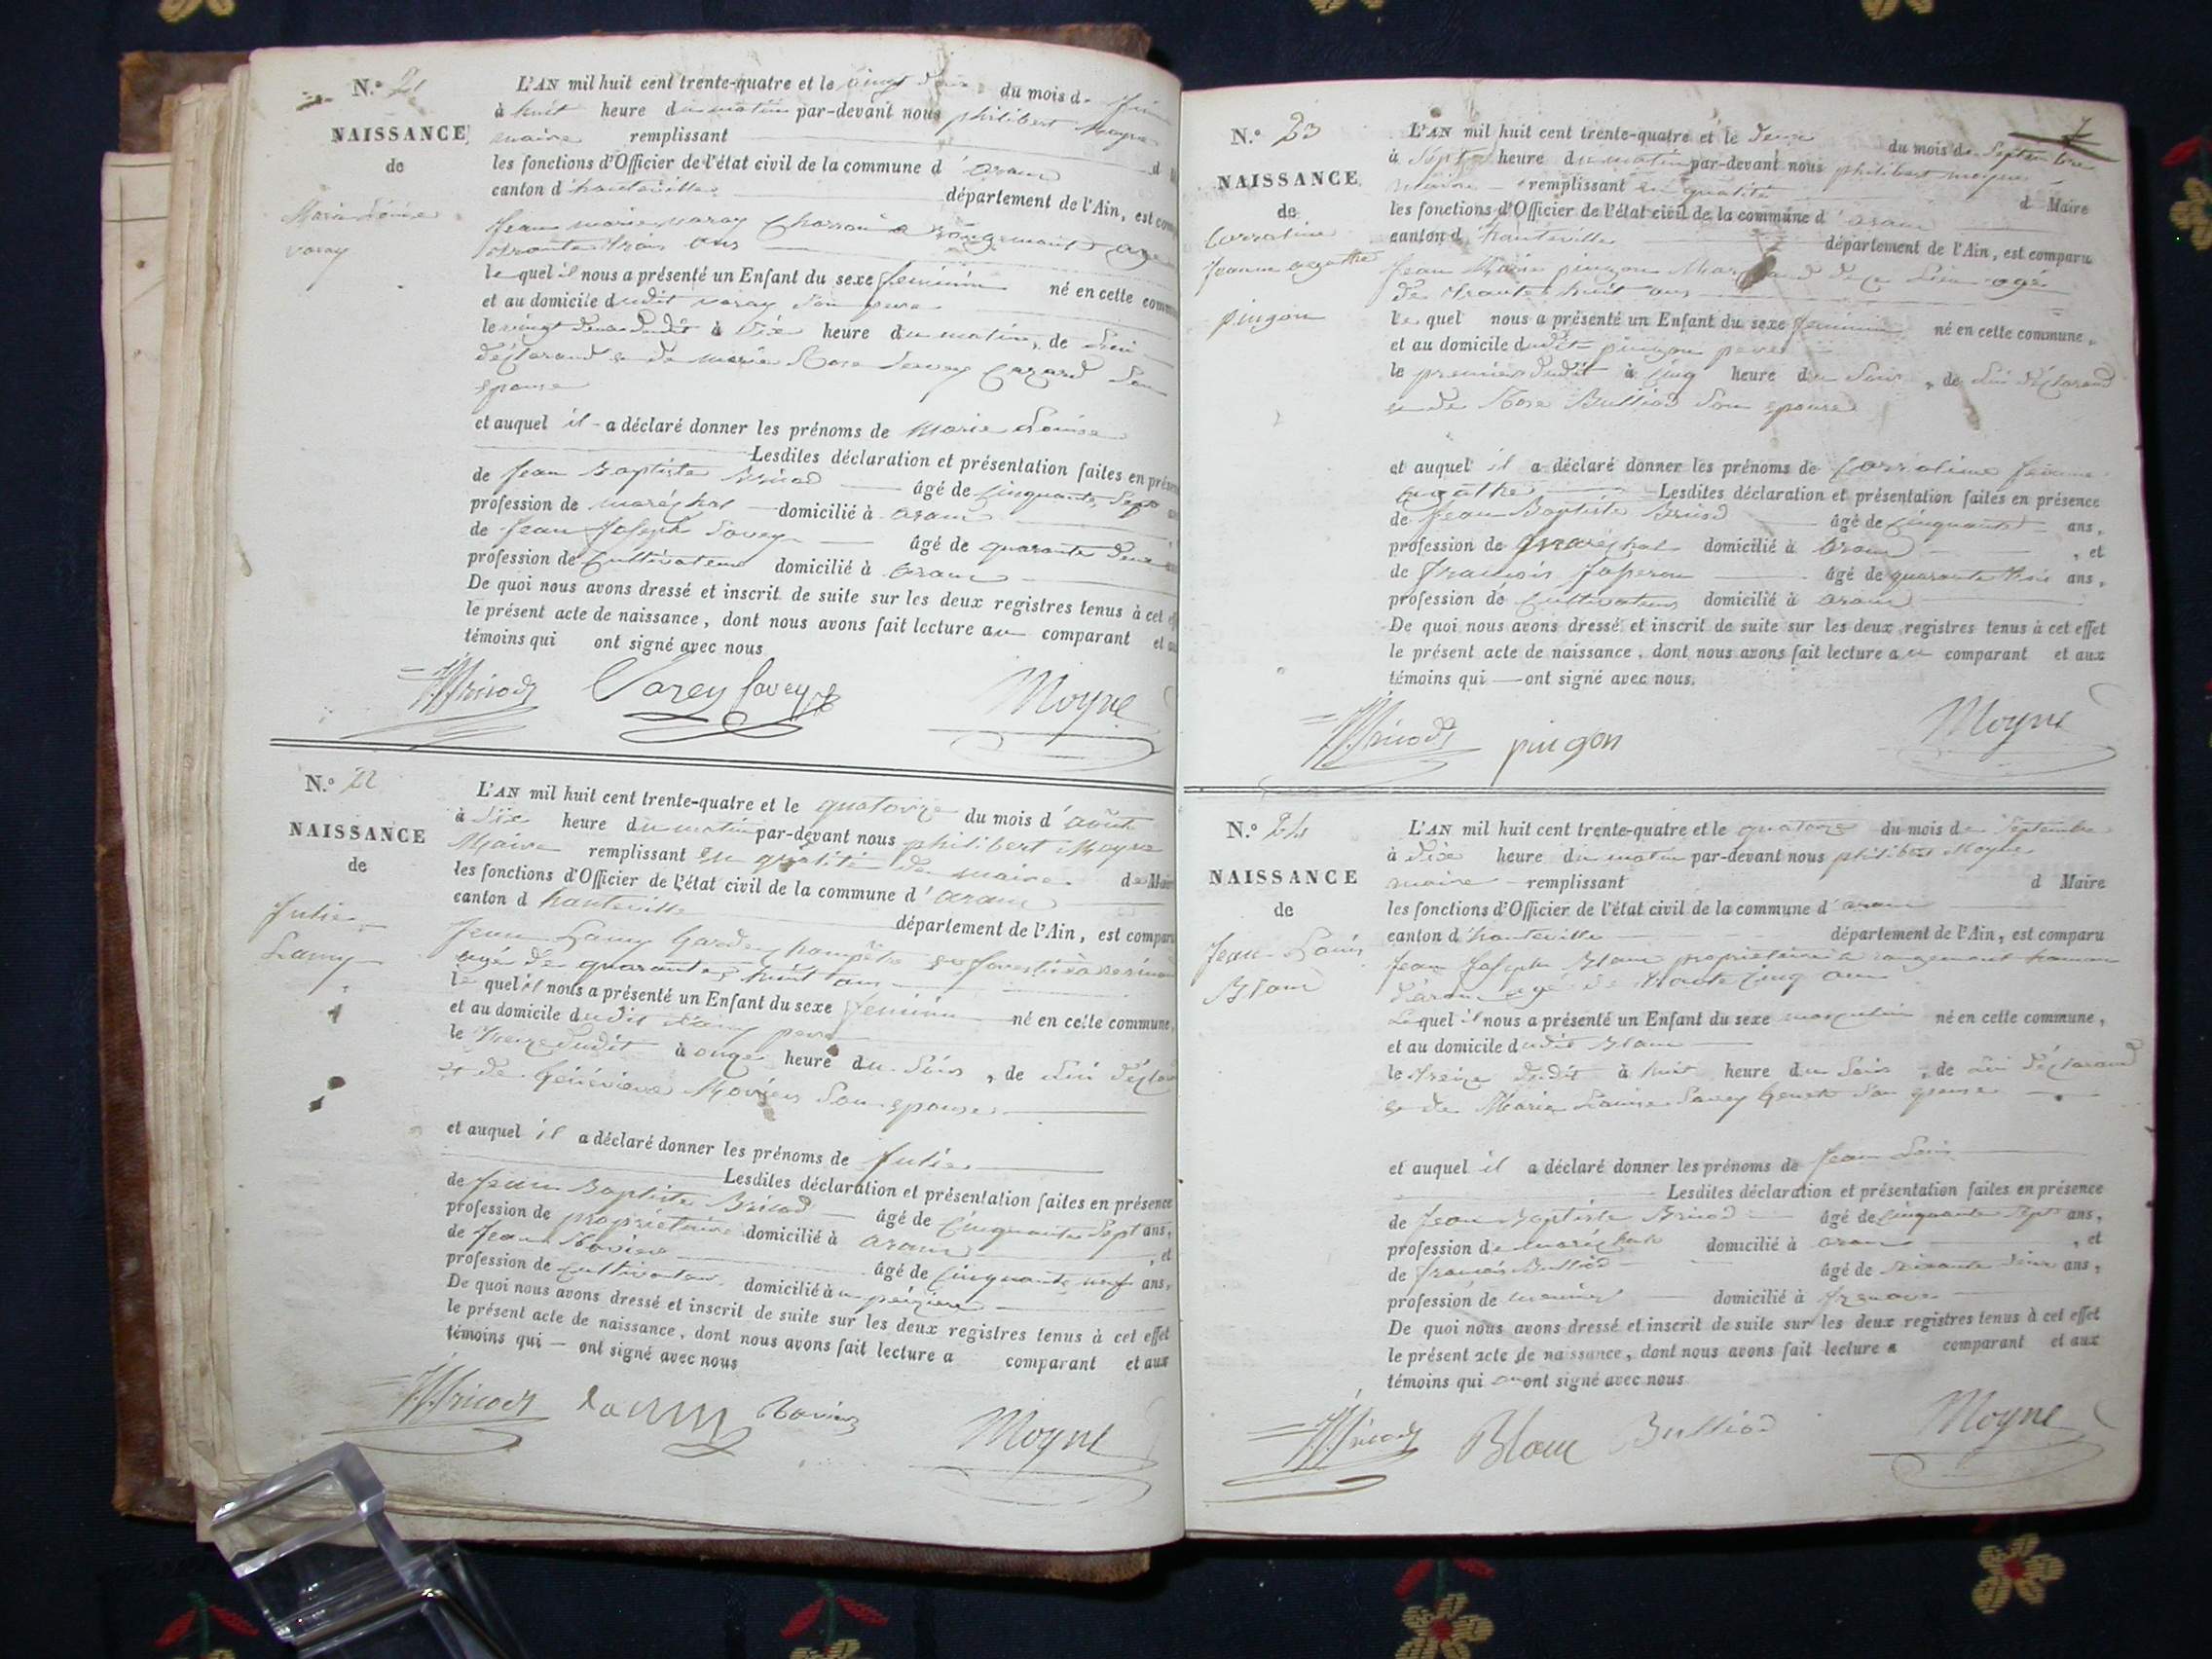 N.o 21
NAISSANCE
de
Marie Louise
varay
L'AN mil huit cent trente-quatre et le vingt deux du mois de
à huit heure du matin par-devant nous philibert Moyne
maire remplissant
les fonctions d'Officier de l'état civil de la commune d'aranc
canton d'hauteville département de l'Ain, est
Jean marie varay Charron a rougemont
trante trois ans
le quel il nous a présenté un Enfant du sexe feminin né en cette
et au domicile dudit varay son pere
le vingt deux dudit à Six heure du matin, de Lui
déclarand e de marie Rose Savey Cazard Son
epouse
et auquel il a déclaré donner les prénoms de Marie Louise
Lesdites déclaration et présentation faites en
de Jean Baptiste Bricod âgé de Cinquante Sept
profession de maréchal domicilié à aranc
de Jean Joseph Savey âgé de quarante deux
profession de Cultivateur domicilié à aranc
De quoi nous avons dressé et inscrit de suite sur les deux registres tenus à cet
le présent acte de naissance, dont nous avons fait lecture au comparant et
témoins qui ont signé avec nous
Bricod Varey Savey Moyne
N.o 22
NAISSANCE
de
Julie
Lamy
L'AN mil huit cent trente-quatre et le quatorze du mois d'août
à Six heure du matin par-devant nous philibert Moyne
Maire remplissant en qualité de maire de Maire
les fonctions d'Officier de l'état civil de la commune d'aranc
canton d hauteville département de l'Ain, est comparu
Jean Lamy Garde Champêtre
agé de quarante huit ans
le quel il nous a présenté un Enfant du sexe feminin né en cette commune,
et au domicile dudit Lamy pere
le treize dudit à onze heure du Soir, de Lui
et de Généviève Movier Son epouse
et auquel il a déclaré donner les prénoms de Julie
Lesdites déclaration et présentation faites en présence
de Jean Baptiste Bricod âgé de Cinquante Sept ans,
profession de propriétaire domicilié à aranc, et
de Jean âgé de Cinquante neuf ans,
profession de Cultivateur domicilié à
De quoi nous avons dressé et inscrit de suite sur les deux registres tenus à cet effet
le présent acte de naissance, dont nous avons fait lecture a comparant et aux
témoins qui — ont signé avec nous
Bricod Lamy Moyne
N.o 23
NAISSANCE
de
Carroline
Jeanne agathe
pingon
7
L'AN mil huit cent trente-quatre et le Deux du mois de Septembre
à Sept heure du matin par-devant nous philibert moyne
maire remplissant en qualité d Maire
les fonctions d'Officier de l'état civil de la commune d'aranc
canton d'hauteville département de l'Ain, est comparu
Jean pingon agé
de trante huit ans
le quel nous a présenté un Enfant du sexe feminin né en cette commune,
et au domicile dudit pingon pere
le premier dudit à Cinq heure du Soir, de Lui déclarand
e de Rose Bulliod Son epouse
et auquel il a déclaré donner les prénoms de Carroline Jeanne
agathe Lesdites déclaration et présentation faites en présence
de Jean Baptiste Bricod âgé de Cinquante ans,
profession de maréchal domicilié à aranc, et
de francois Jasseron âgé de quarante trois ans,
profession de Cultivateur domicilié à aranc
De quoi nous avons dressé et inscrit de suite sur les deux registres tenus à cet effet
le présent acte de naissance, dont nous avons fait lecture au comparant et aux
témoins qui — ont signé avec nous.
Bricod pingon Moyne
N.o 24
NAISSANCE
de
Jean Louis
Blanc
L'AN mil huit cent trente-quatre et le quatorze du mois de Septembre
à Dix heure du matin par-devant nous philibert Moyne
maire remplissant d Maire
les fonctions d'Officier de l'état civil de la commune d'aranc
canton d'hauteville département de l'Ain, est comparu
Jean Joseph Blanc propriétaire à rougemont hameau
d'aranc agé de trante Cinq ans
Le quel il nous a présenté un Enfant du sexe masculin né en cette commune,
et au domicile dudit Blanc
le treize dudit à huit heure du Soir, de Lui déclarand
e de Marie Louise Savey Son epouse
et auquel il a déclaré donner les prénoms de Jean Louis
Lesdites déclaration et présentation faites en présence
de Jean Baptiste Bricod âgé de Cinquante Sept ans,
profession de maréchal domicilié à aranc, et
de francois Bulliod âgé de Soixante Deux ans,
profession de domicilié à
De quoi nous avons dressé et inscrit de suite sur les deux registres tenus à cet effet
le présent acte de naissance, dont nous avons fait lecture a comparant et aux
témoins qui ont signé avec nous
Bricod Blanc Bulliod Moyne